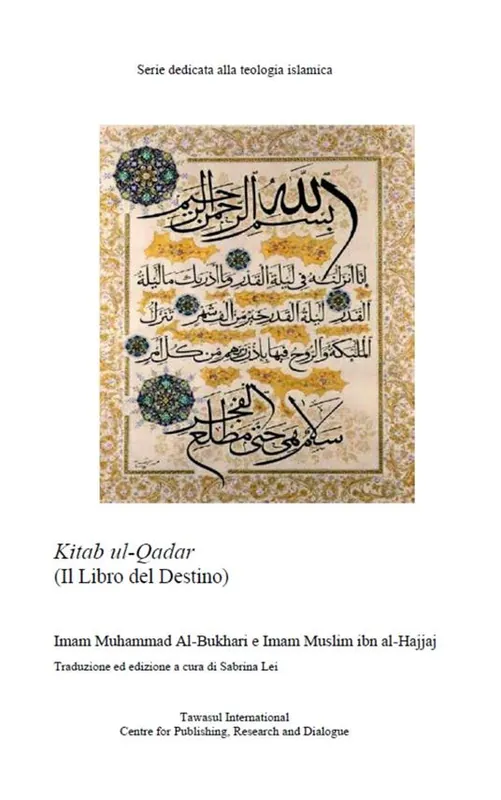 Serie dedicata alla teologia islamica
بسم الله الرحمن الرحيم
إنا أنزلنه في ليلة القدر وما أدريك ما ليلة
القدر ليلة القدر خير من ألف شهر تنزل
الملئكة والروح فيها بإذن ربهم من كل أمر
سلام هي حتى مطلع الفجر
Kitab ul-Qadar
(Il Libro del Destino)
Imam Muhammad Al-Bukhari e Imam Muslim ibn al-Hajjaj
Traduzione ed edizione a cura di Sabrina Lei
Tawasul International
Centre for Publishing, Research and Dialogue